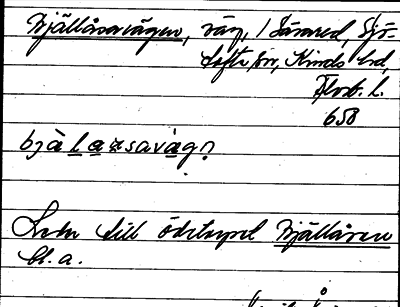 Bjällåsavägen, väg, i Länared, Sjö-
tofta sn, Kinds hd
Älvsb. l.
658
bjälaʀsavägn
Leder till ödetorpet Bjällåsen
bl. a.